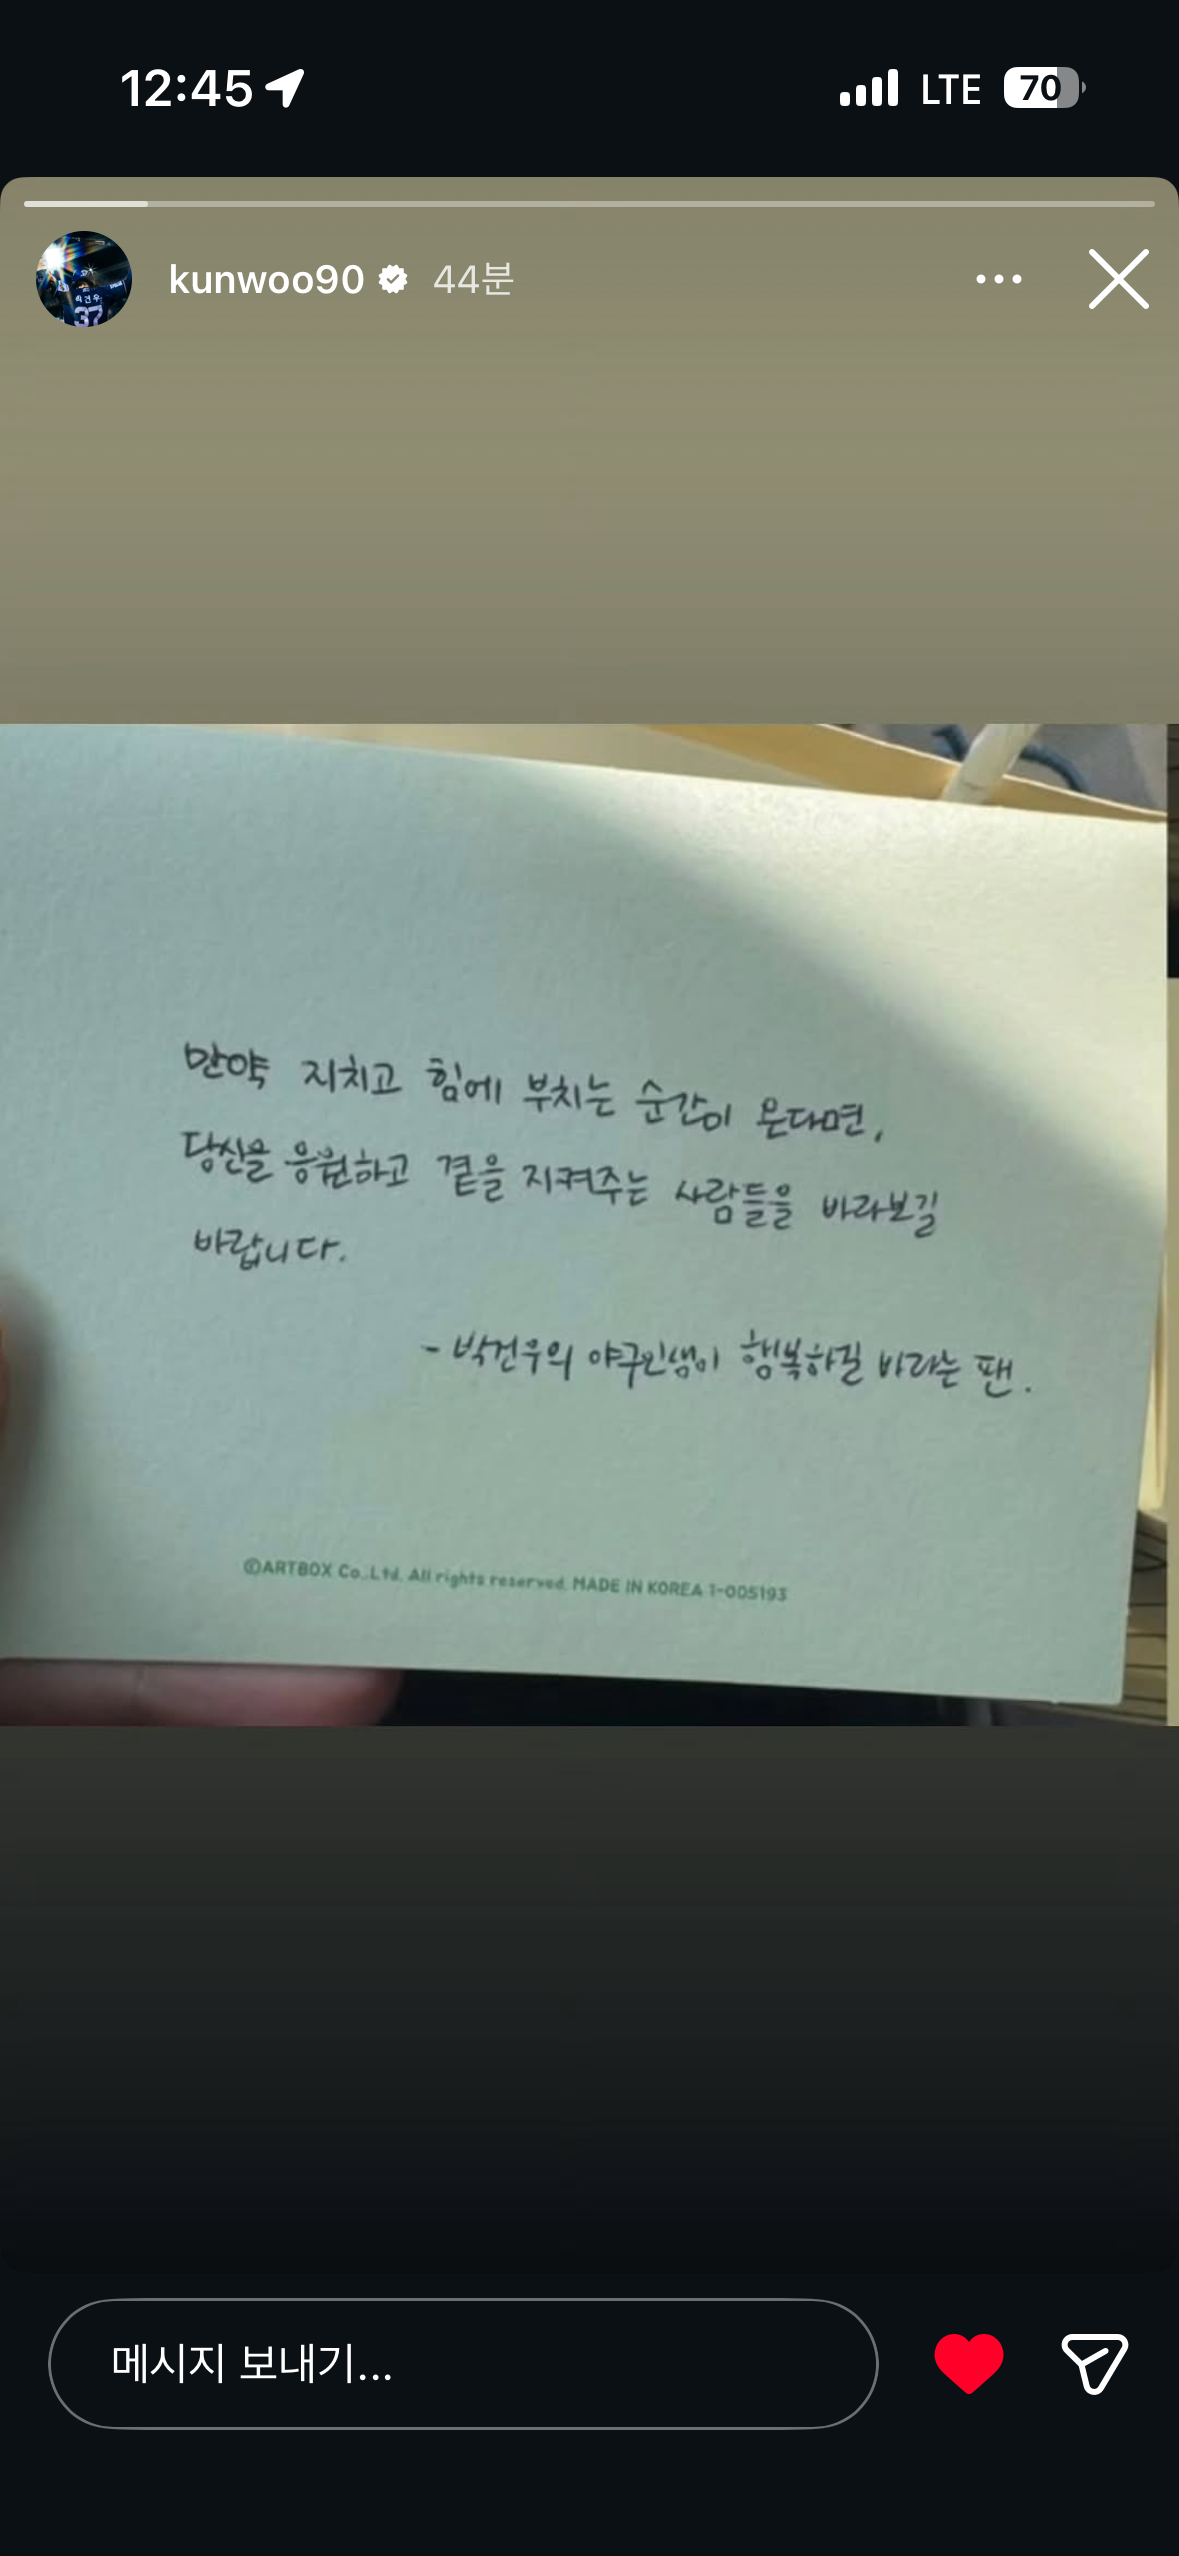 12:45 LTE 70
kunwoo90 44분
박건우
37
만약 지치고 힘에 부치는 순간이 온다면,
당신을 응원하고 곁을 지켜주는 사람들을 바라보길
바랍니다.
- 박건우의 야구인생이 행복하길 바라는 팬.
©ARTBOX Co.,Ltd. All rights reserved. MADE IN KOREA 1-005193
메시지 보내기...